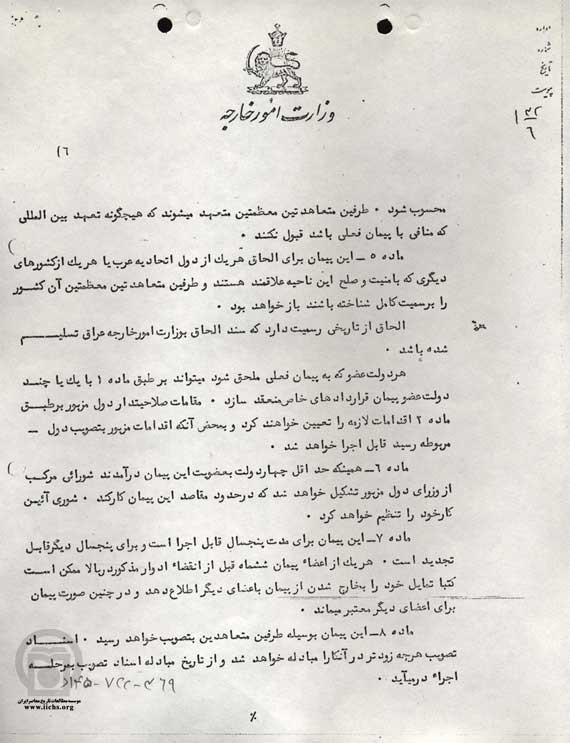 اداره
شماره
تاریخ
پیوست
وزارت امور خارجه
۱۶
محسوب شود ۰ طرفین متعاهدتین معظمتین متعهد میشوند که هیچگونه تعهد بین المللی
که منافی با پیمان فعلی باشد قبول نکنند ۰
ماده ۵ ــ این پیمان برای الحاق هریك از دول اتحادیه عرب یا هریك ازکشورهای
دیگری که بامنیت و صلح این ناحیه علاقمند هستند و طرفین متعاهدتین معظمتین آن کشور
را برسمیت کامل شناخته باشند باز خواهد بود ۰
الحاق از تاریخی رسمیت دارد که سند الحاق بوزارت امورخارجه عراق تسلیم
شده باشد ۰
هردولت عضوکه به پیمان فعلی ملحق شود میتواند برطبق ماده ۱ با یك یا چند
دولت عضو پیمان قراردادهای خاص منعقد سازد ۰ مقامات صلاحیتدار دول مزبور برطبق
ماده ۲ اقدامات لازمه را تعیین خواهند کرد و بمحض آنکه اقدامات مزبور بتصویب دول ــ
مربوطه رسید قابل اجرا خواهد شد ۰
ماده ۶ ــ همینکه حد اقل چهاردولت بعضویت این پیمان درآمدند شورائی مرکب
از وزرای دول مزبور تشکیل خواهد شد که درحدود مقاصد این پیمان کارکند ۰ شوری آئین
کارخود را تنظیم خواهد کرد ۰
ماده ۷ ــ این پیمان برای مدت پنجسال قابل اجرا است و برای پنجسال دیگرقابل
تجدید است ۰ هریك از اعضاء پیمان ششماه قبل از انقضاء ادوار مذکوردربالا ممکن است
کتبا تمایل خود را بخارج شدن از پیمان باعضای دیگر اطلاع دهد و درچنین صورت پیمان
برای اعضای دیگر معتبر میماند ۰
ماده ۸ ــ این پیمان بوسیله طرفین متعاهدین بتصویب خواهد رسید ۰ اسناد
تصویب هرچه زودتر در آنکارا مبادله خواهد شد و از تاریخ مبادله اسناد تصویب بمرحله
اجراء درمیآید ۰
موسسه مطالعات تاریخ معاصر ایران
www.iichs.org